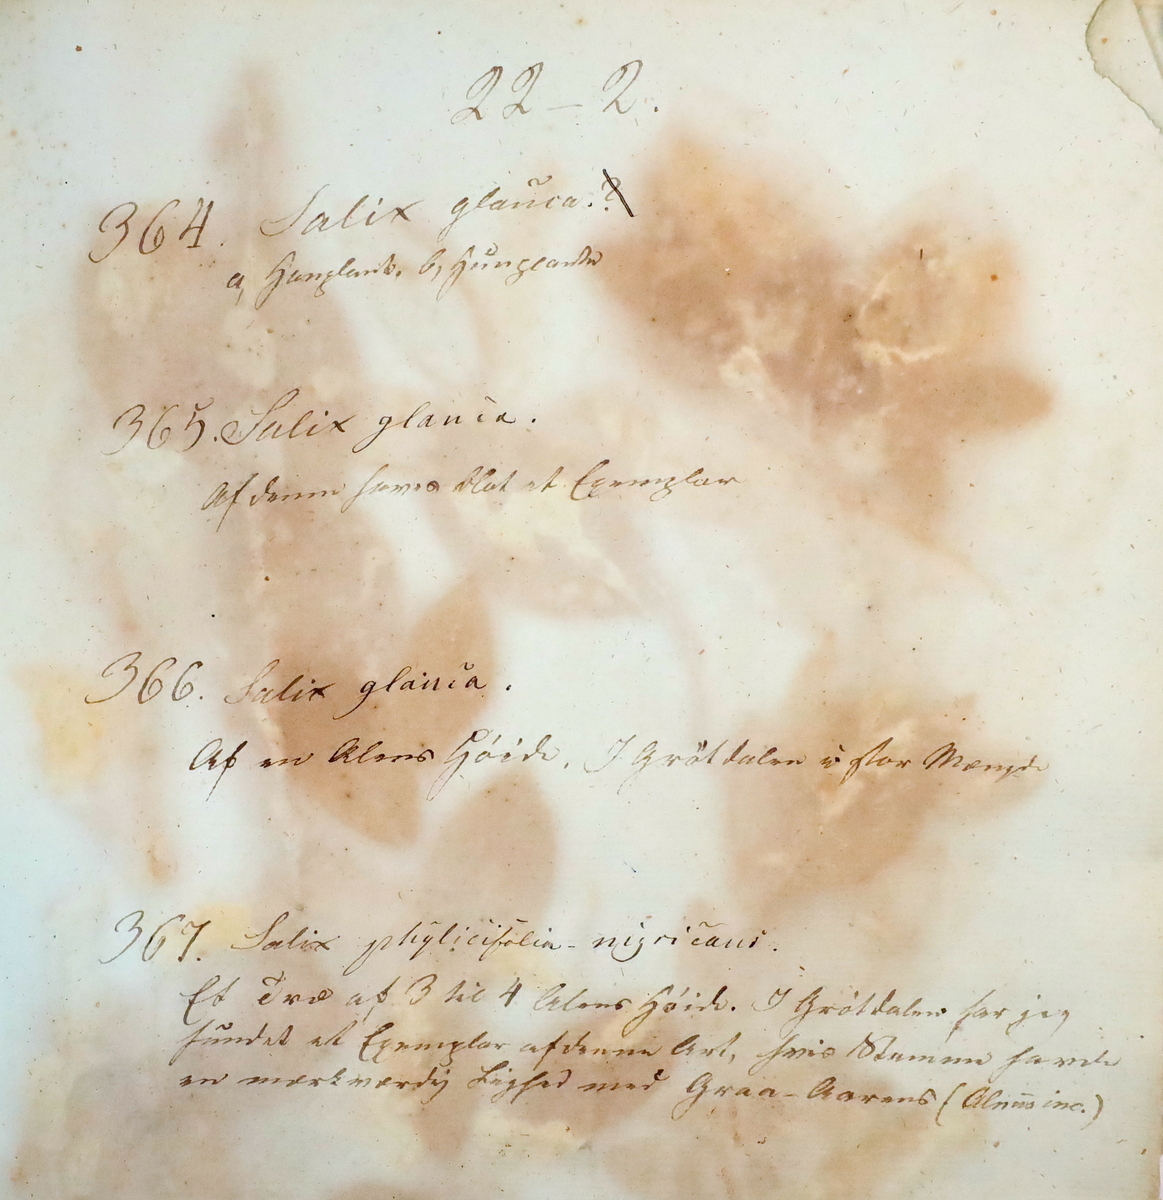 22 – 2.
364. Salix glauca.?
a, Hanplante. b, Hunplante
365. Salix glauca.
Af denne haves blot et Exemplar
366. Salix glauca.
Af en Alens Höide. I Grötdalen i stor Mængde
367. Salix phylicifolia - nigricans.
Et Træ af 3 til 4 Alens Höide. I Grötdalen har jeg
fundet et Exemplar af denne Art, hvis Stamme havde
en mærkværdig Lighed med Graa-Aarens (Alnus inc.)